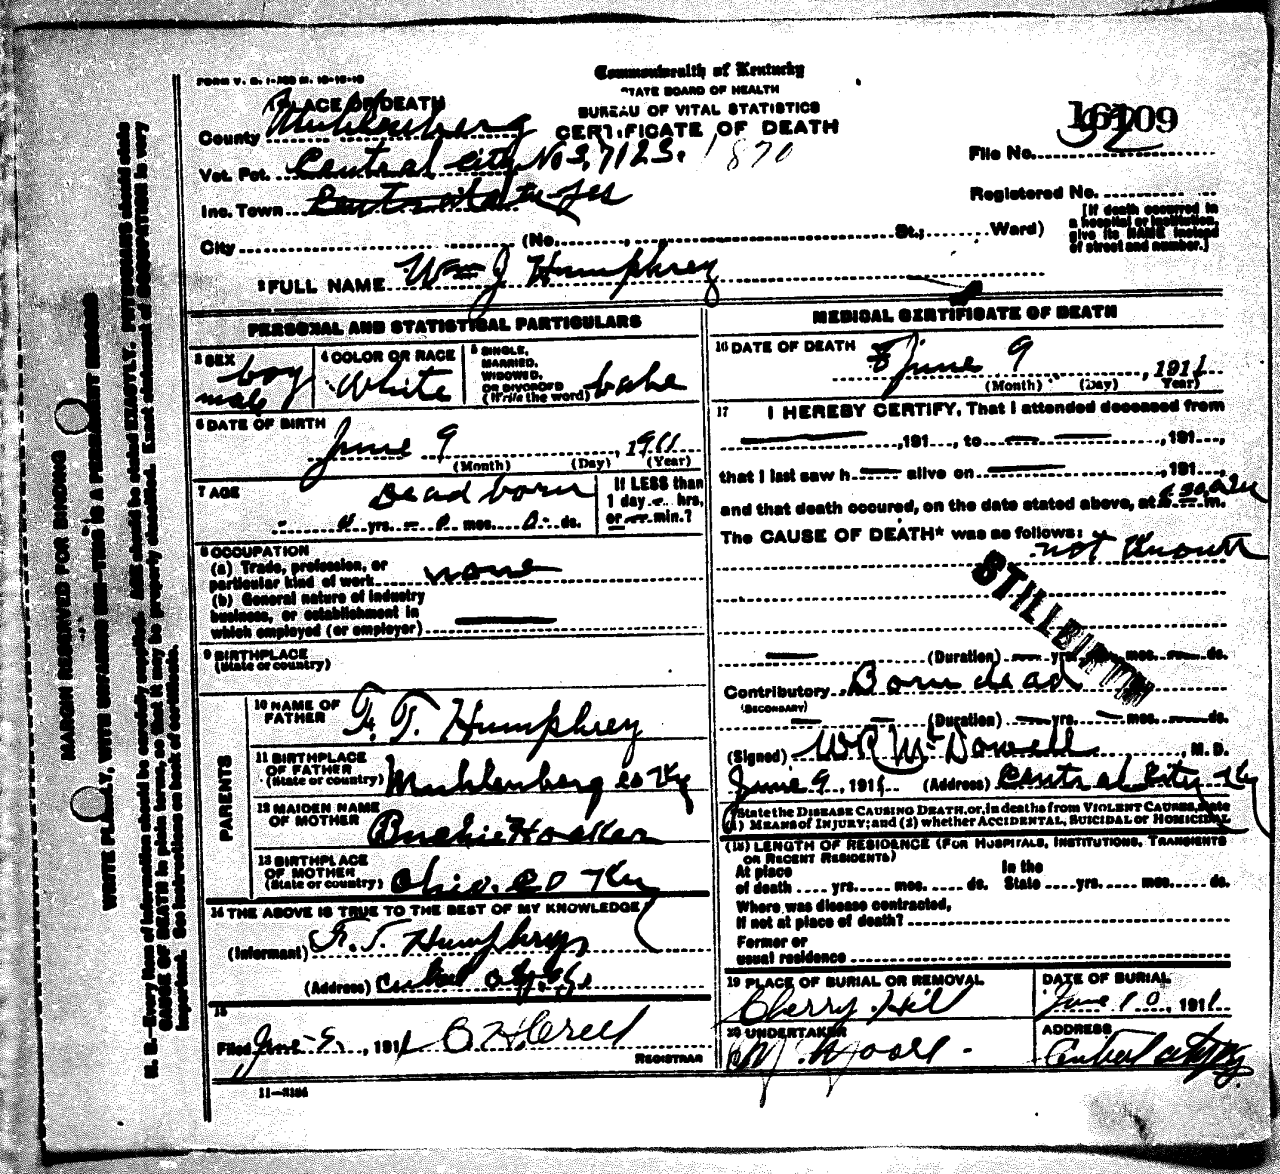 FORM V. S. 1-
Commonwealth of Kentucky
STATE BOARD OF HEALTH
BUREAU OF VITAL STATISTICS
CERTIFICATE OF DEATH
1 PLACE OF DEATH
County Muhlenberg
Vot. Pct. Central City No 3, 7123. 1870
Inc. Town
City (No. , St.; Ward)
File No. 16109
Registered No.
[If death occurred in a hospital or institution, give its NAME instead of street and number.]
2 FULL NAME Wm J Humphrey
PERSONAL AND STATISTICAL PARTICULARS
3 SEX boy male
4 COLOR OR RACE White
5 SINGLE, MARRIED, WIDOWED, OR DIVORCED (Write the word) babe
6 DATE OF BIRTH
June 9, 1911
(Month) (Day) (Year)
7 AGE Dead born
0 yrs. 0 mos. 0 ds.
If LESS than 1 day hrs. or min.?
8 OCCUPATION
(a) Trade, profession, or particular kind of work none
(b) General nature of industry business, or establishment in which employed (or employer)
9 BIRTHPLACE
(State or country)
PARENTS
10 NAME OF FATHER F. T. Humphrey
11 BIRTHPLACE OF FATHER (State or country) Muhlenberg co Ky
12 MAIDEN NAME OF MOTHER
13 BIRTHPLACE OF MOTHER (State or country) Ohio co Ky
14 THE ABOVE IS TRUE TO THE BEST OF MY KNOWLEDGE
(Informant) F. T. Humphrey
(Address)
15
Filed June , 1911
REGISTRAR
11-
MEDICAL CERTIFICATE OF DEATH
16 DATE OF DEATH
June 9, 1911
(Month) (Day) (Year)
17 I HEREBY CERTIFY, That I attended deceased from
, 191 , to , 191 ,
that I last saw h alive on , 191 ,
and that death occured, on the date stated above, at m.
The CAUSE OF DEATH* was as follows:
not known
STILLBIRTH
(Duration) yrs. mos. ds.
Contributory Born dead
(SECONDARY)
(Duration) yrs. mos. ds.
(Signed) W R McDowell, M. D.
June 9, 1911 (Address) Central City Ky
*State the DISEASE CAUSING DEATH, or, in deaths from VIOLENT CAUSES, state
(1) MEANS OF INJURY; and (2) whether ACCIDENTAL, SUICIDAL or HOMICIDAL
(18) LENGTH OF RESIDENCE (FOR HOSPITALS, INSTITUTIONS, TRANSIENTS OR RECENT RESIDENTS)
At place of death yrs. mos. ds. In the State yrs. mos. ds.
Where was disease contracted,
If not at place of death?
Former or
usual residence
19 PLACE OF BURIAL OR REMOVAL
Cherry Hill
DATE OF BURIAL
June 10, 1911
20 UNDERTAKER
ADDRESS
Central City Ky
MARGIN RESERVED FOR BINDING
WRITE PLAINLY, WITH UNFADING INK—THIS IS A PERMANENT RECORD
N. B.—Every item of information should be carefully supplied. AGE should be stated EXACTLY. PHYSICIANS should state
CAUSE OF DEATH in plain terms, so that it may be properly classified. Exact statement of OCCUPATION is very
important. See instructions on back of certificate.